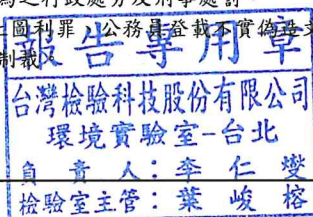 上圖利罪、公務員登載不實偽造文
制裁。
報告專用章
台灣檢驗科技股份有限公司
環境實驗室-台北
負責人：李仁燮
檢驗室主管：葉峻榕